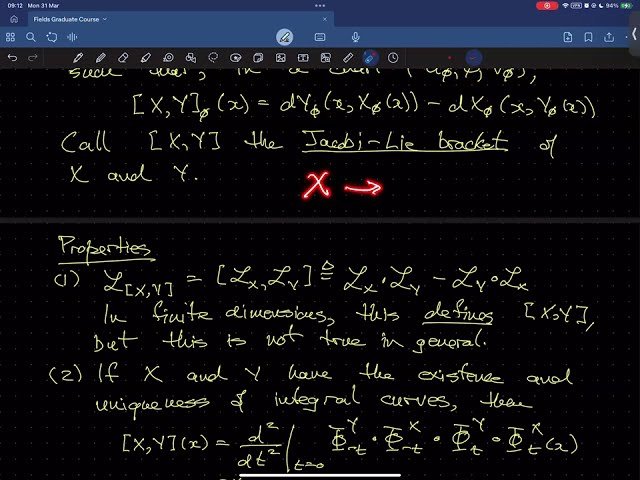 09:12 Mon 31 Mar
VPN
94%
Fields Graduate Course
such that, in a chart (U_φ, φ, V_φ),
[X,Y]_φ(x) = dY_φ(x, X_φ(x)) - dX_φ(x, Y_φ(x))
Call [X,Y] the Jacobi-Lie bracket of
X and Y.
X →
Properties
(1) ℒ_[X,Y] = [ℒ_X, ℒ_Y] ≜ ℒ_X ∘ ℒ_Y - ℒ_Y ∘ ℒ_X
In finite dimensions, this defines [X,Y],
but this is not true in general.
(2) If X and Y have the existence and
uniqueness of integral curves, then
[X,Y](x) = d²/dt² |_t=0 Φ^Y_-t ∘ Φ^X_-t ∘ Φ^Y_t ∘ Φ^X_t (x)